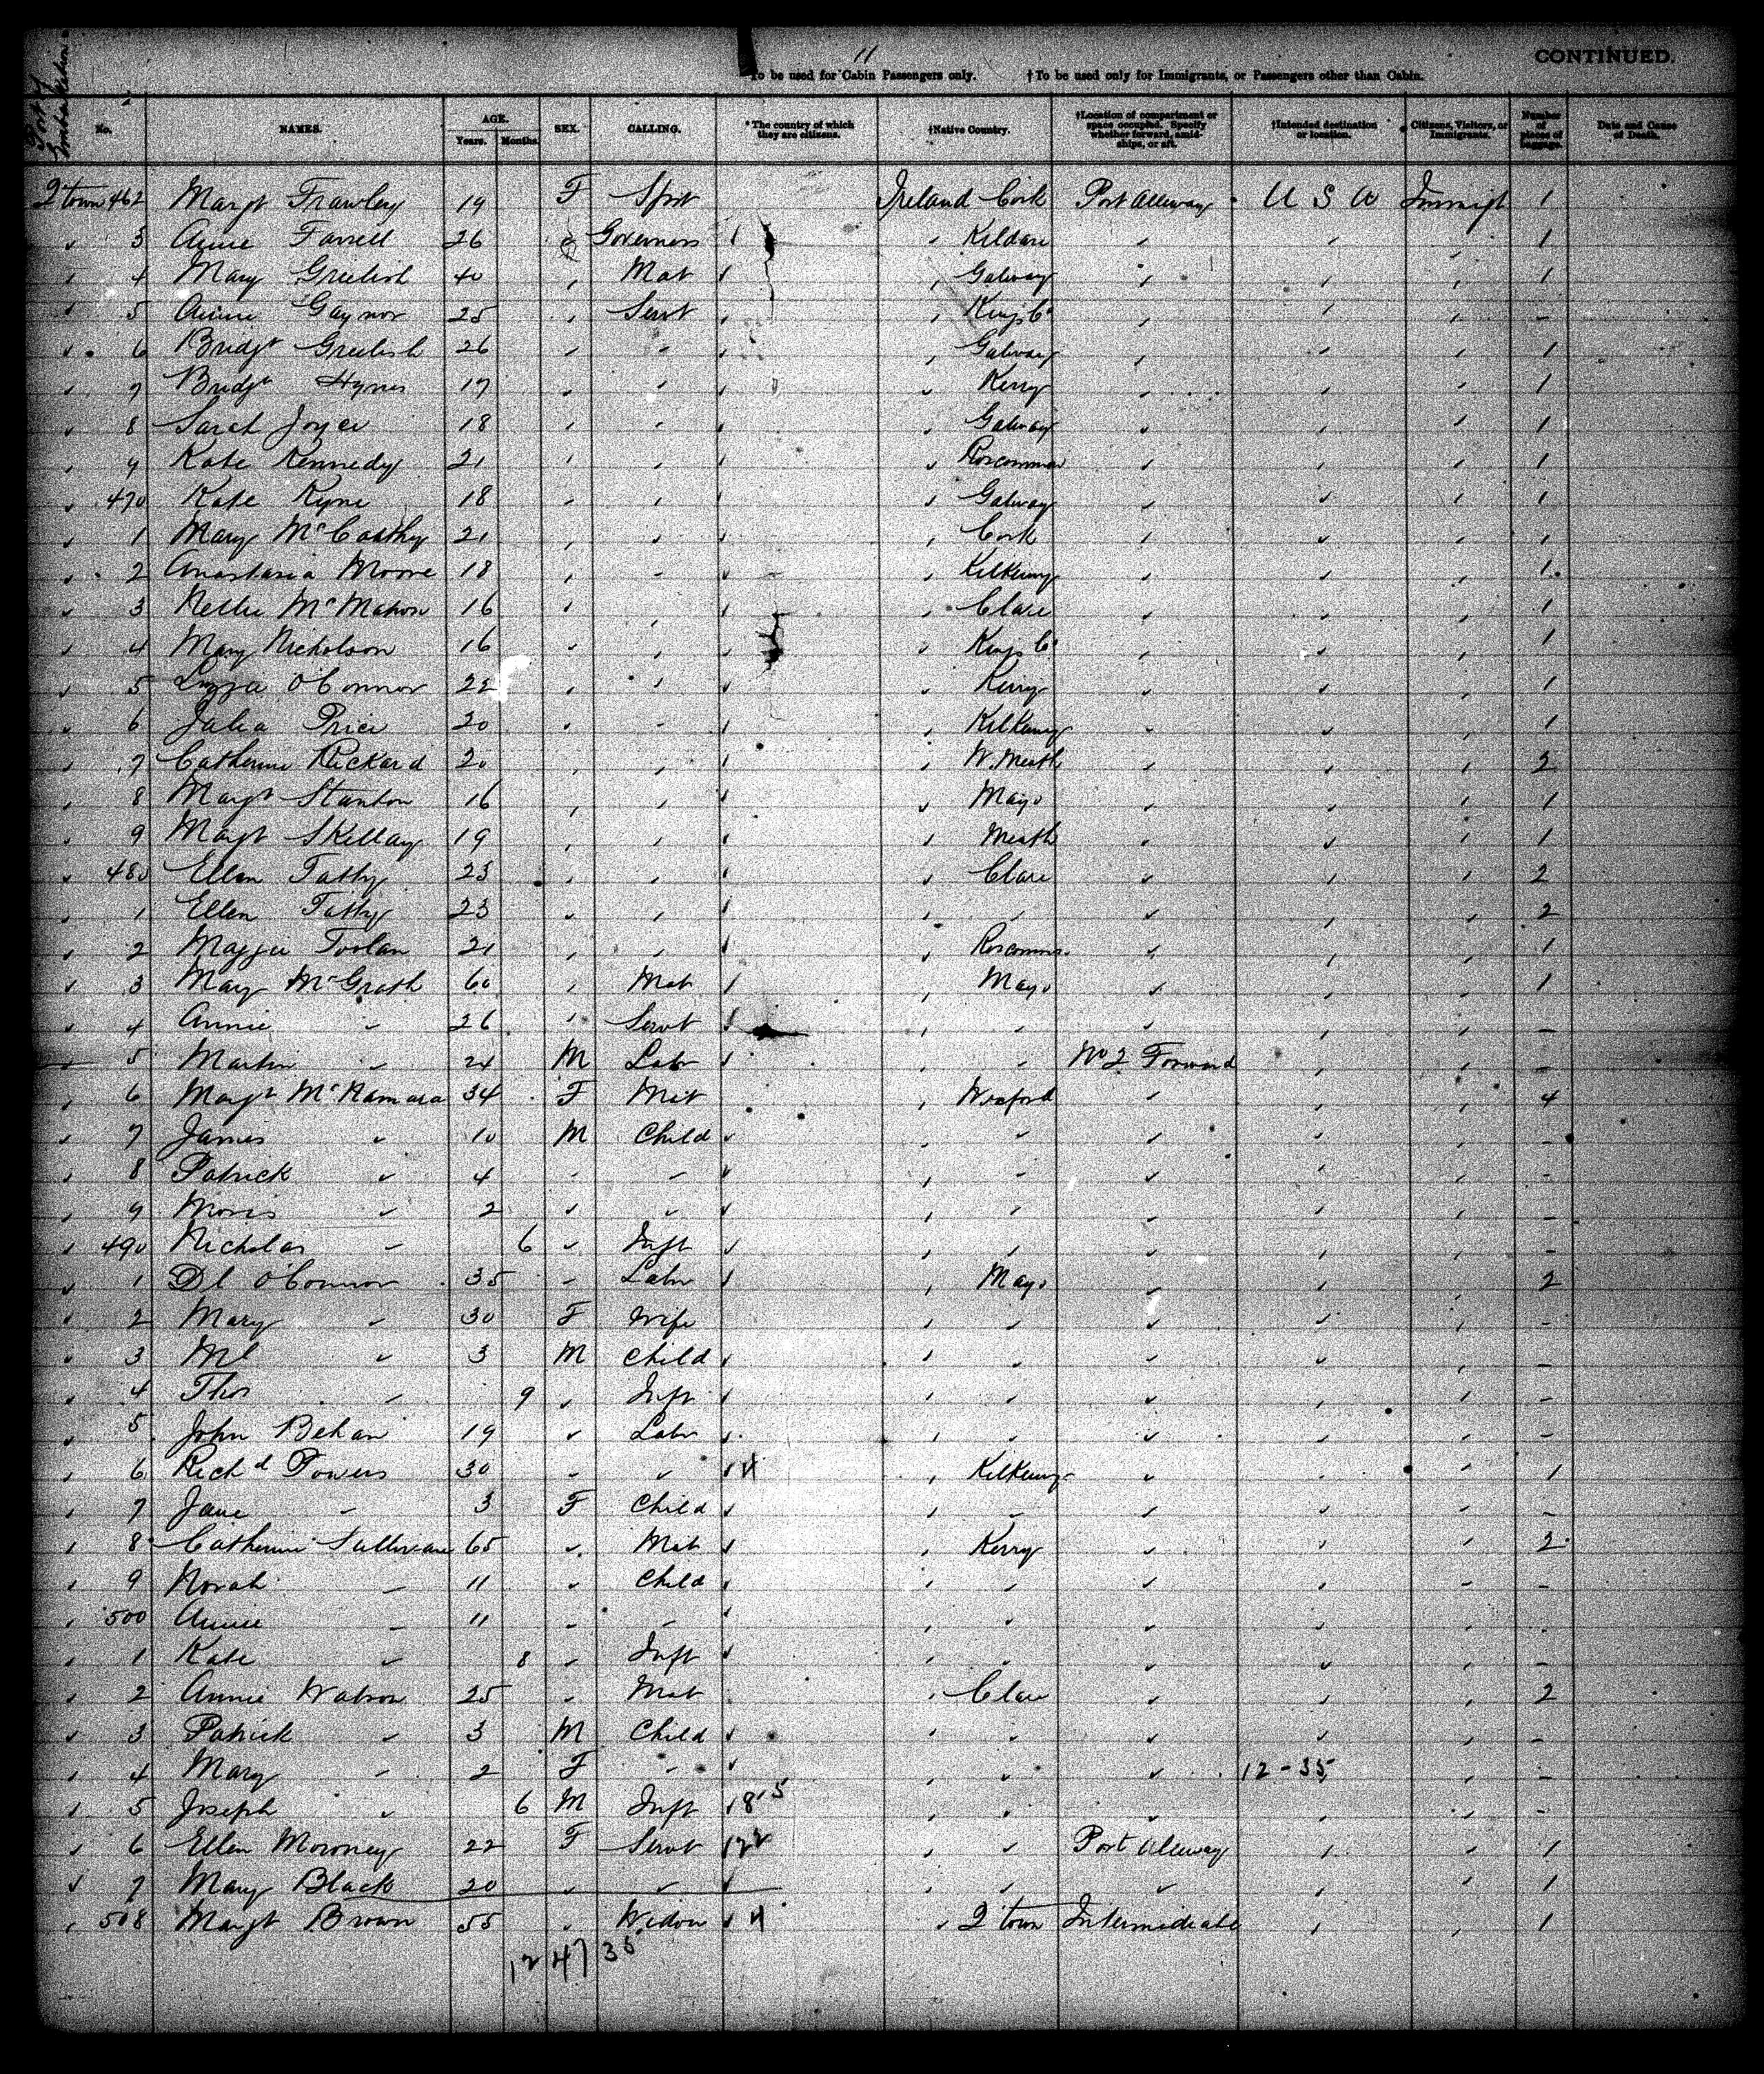 Port of Embarkation
11
CONTINUED.
*To be used for Cabin Passengers only. †To be used only for Immigrants, or Passengers other than Cabin.
No. NAMES. AGE. Years. Months. SEX. CALLING. *The country of which they are citizens. †Native Country. †Location of compartment or space occupied. Specify whether forward, amidships, or aft. †Intended destination or location. Citizens, Visitors, or Immigrants. Number of pieces of baggage. Date and Cause of Death.
2 town 462 Margt Frawley 19 F Spst Ireland Cork Port Alleway U S A Immigt 1
3 Annie Farrell 26 Governess Kildare 1
4 Mary Greelish 40 Mat Galway 1
5 Annie Gaynor 25 Servt Kings Co -
6 Bridgt Greelish 26 Galway 1
7 Bridgt Hynes 17 Kerry 1
8 Sarah Joyce 18 Galway 1
9 Kate Kennedy 21 Roscommon 1
470 Kate Kyne 18 Galway 1
1 Mary McCarthy 21 Cork 1
2 Anastasia Moore 18 Kilkenny 1
3 Nellie McMahon 16 Clare 1
4 Mary Nicholson 16 Kings Co 1
5 Lizzie O'Connor 22 Kerry 1
6 Julia Price 20 Kilkenny 1
7 Catherine Rickard 20 W. Meath 2
8 Margt Stanton 16 Mayo 1
9 Margt Skellay 19 Meath 1
480 Ellen Tatty 23 Clare 2
1 Ellen Tatty 23 2
2 Maggie Toolan 21 Roscomm. 1
3 Mary McGrath 60 Mat Mayo 1
4 Annie 26 Servt -
5 Martin 24 M Labr No 2 Forward -
6 Margt McNamara 34 F Mat Wexford 4
7 James 10 M Child -
8 Patrick 4 -
9 Moris 2 -
490 Nicholas 6 Inft -
1 Dl O'Connor 35 Labr Mayo 2
2 Mary 30 F Wife -
3 Ml 3 M Child -
4 Thos 9 Inft -
5 John Behan 19 Labr -
6 Richd Powers 30 4 Kilkenny 1
7 Jane 3 F Child -
8 Catherine Sullivan 65 Mat Kerry 2
9 Norah 11 Child -
500 Annie 11
1 Kate 8 Inft -
2 Annie Watson 25 Mat Clare 2
3 Patrick 3 M Child -
4 Mary 2 F 12-35 -
5 Joseph 6 M Inft -
6 Ellen Moroney 22 F Servt Port Alleway 1
7 Mary Black 20 1
508 Margt Brown 55 Widow 4 2 town Intermediate 1
12 47 35